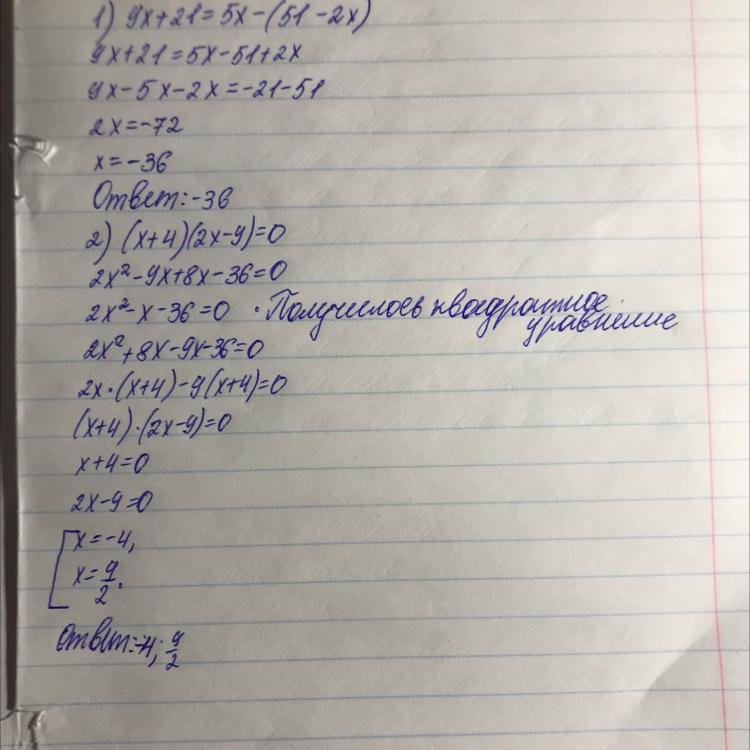 1) 9x+21=5x-(51-2x)
9x+21=5x-51+2x
9x-5x-2x=-21-51
2x=-72
x=-36
Ответ:-36
2) (x+4)(2x-9)=0
2x²-9x+8x-36=0
2x²-x-36=0 · Получилось квадратное
уравнение
2x²+8x-9x-36=0
2x·(x+4)-9(x+4)=0
(x+4)·(2x-9)=0
x+4=0
2x-9=0
[x=-4,
x=9/2.
Ответ:-4; 9/2